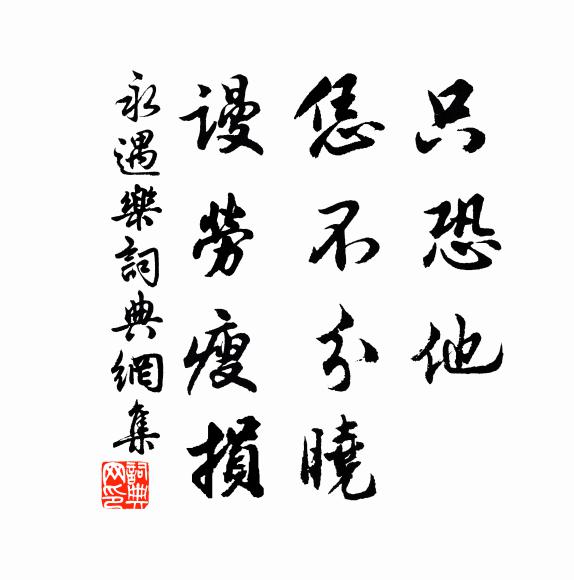 只恐他
恁不分曉
謾勞瘦損
永遇樂詞典網集
詞典网印